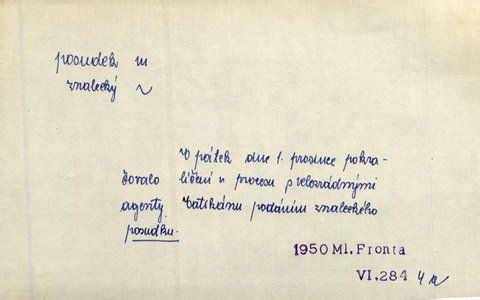 posudek m
znalecký ~
V pátek dne 1. prosince pokra-
čovalo líčení v procesu s velezrádnými
agenty Vatikánu podáním znaleckého
posudku.
1950 Ml. Fronta
VI.284